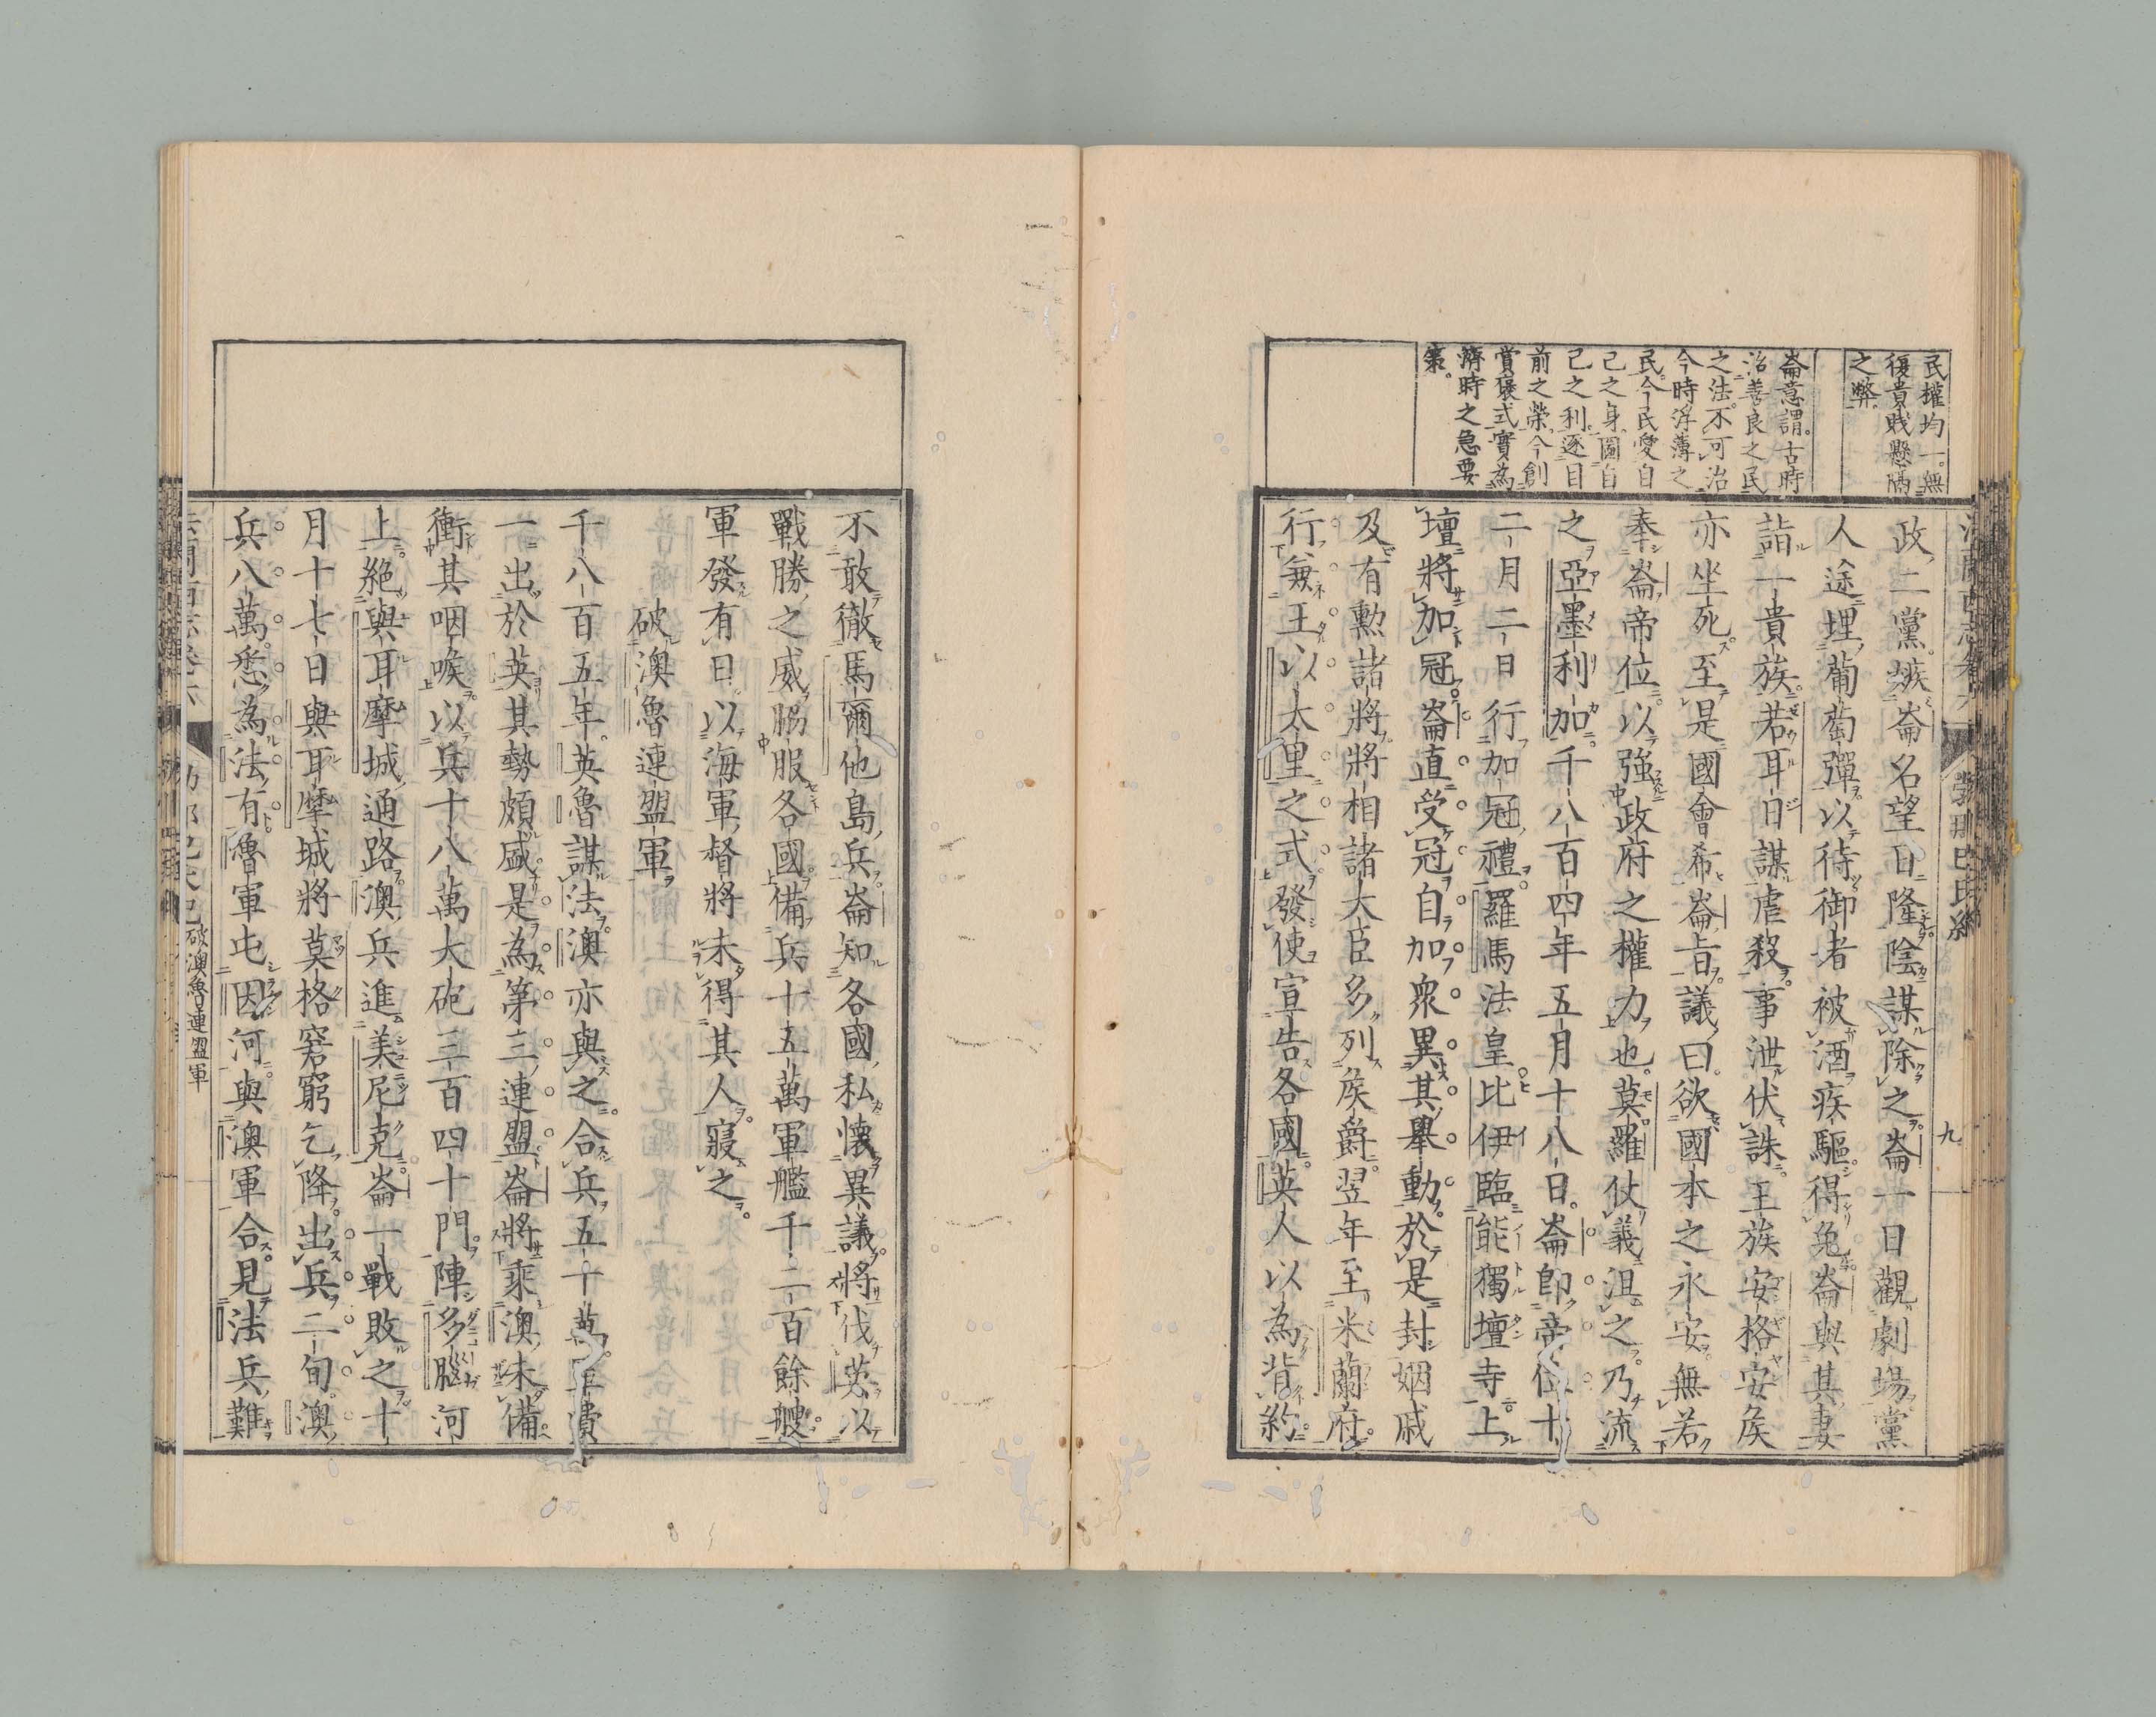 民權均一。無
復貴賤懸隔
之弊。
崙意謂。古時
治善良之民
之法。不可治
今時浮薄之
民。今民愛自
己之身。圖自
己之利。逐目
前之榮。今創
賞褒式。實為
濟時之急要
策。
政二黨。嫉崙名望日隆。陰謀除之。崙一日觀劇場。黨
人途埋葡萄彈。以待。御者被酒疾驅得免。崙與其妻
詣一貴族。若耳日謀虐殺。事泄伏誅。王族安格安侯
亦坐死。至是國會希崙旨。議曰。欲國本之永安。無若
奉崙帝位。以強政府之權力也。莫羅仗義沮之。乃流
之亞墨利加。千八百四年五月十八日。崙即帝位。十
二月二日行加冠禮。羅馬法皇比伊臨能獨壇寺上
壇將加冠。崙直受冠自加。眾異其舉動。於是封姻戚
及有勲諸將。將相諸大臣多列侯爵。翌年至米蘭府。
行兼王以太里之式。發使宣告各國。英人以為背約。
九
不敢徹馬爾他島兵。崙知各國私懷異議。將伐英以
戰勝之威。脇服各國。備兵十五萬。軍艦千二百餘艘。
軍發有日。以海軍督將未得其人。寢之。
破澳魯連盟軍
千八百五年。英魯謀法。澳亦與之。合兵五十萬。軍費
一出於英。其勢頗盛。是為第三連盟。崙將乘澳未備
衝其咽喉。以兵十八萬大砲三百四十門。陣多腦河
上。絕與耳摩城通路。澳兵進美尼克。崙一戰敗之。十
月十七日。與耳摩城將莫格窘窮乞降。出兵二旬。澳
兵八萬。悉為法有。魯軍屯因河。與澳軍合。見法兵難
破澳魯連盟軍